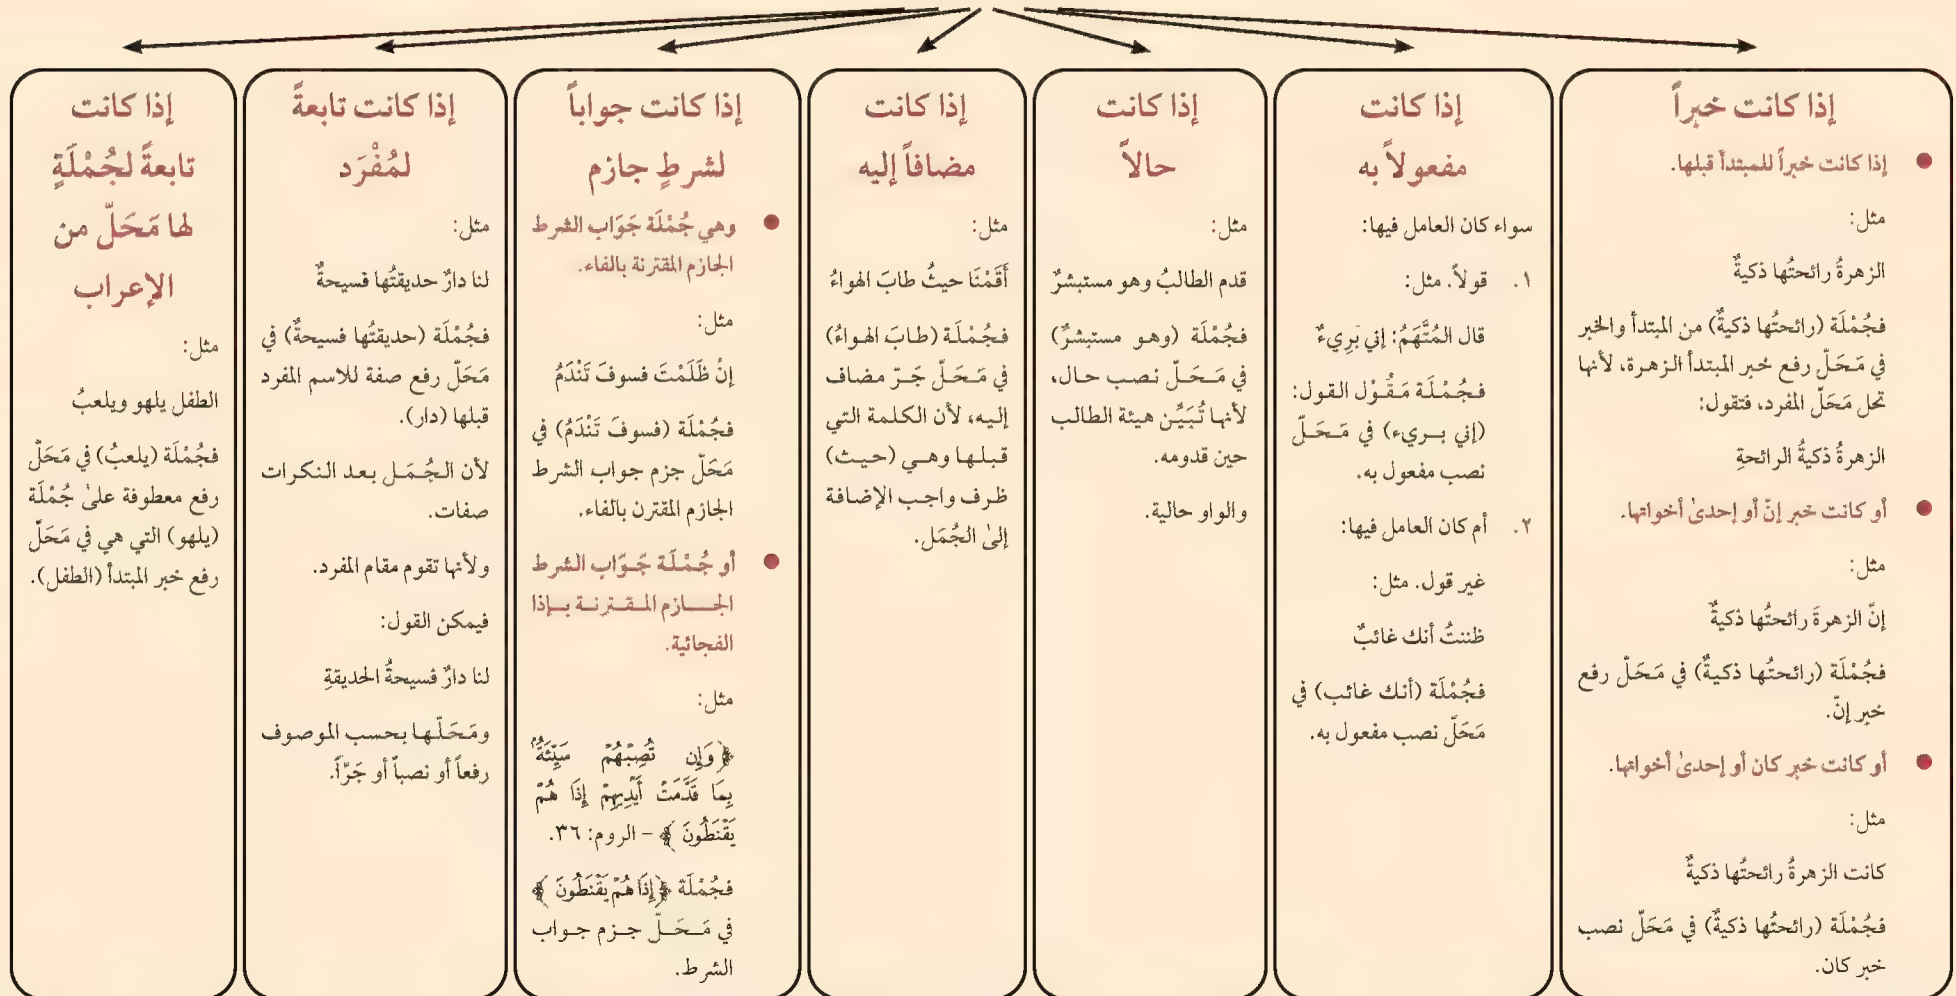 إذا كانت خبراً
● إذا كانت خبراً للمبتدأ قبلها.
مثل:
الزهرةُ رائحتُها ذكيةٌ
فجُمْلَة (رائحتُها ذكيةٌ) من المبتدأ والخبر
في مَحَلّ رفع خبر المبتدأ الزهرة، لأنها
تحل مَحَلّ المفرد، فتقول:
الزهرةُ ذكيةُ الرائحةِ
● أو كانت خبر إنّ أو إحدىٰ أخواتها.
مثل:
إنّ الزهرةَ رائحتُها ذكيةٌ
فجُمْلَة (رائحتُها ذكيةٌ) في مَحَلّ رفع
خبر إنّ.
● أو كانت خبر كان أو إحدىٰ أخواتها.
مثل:
كانت الزهرةُ رائحتُها ذكيةٌ
فجُمْلَة (رائحتُها ذكيةٌ) في مَحَلّ نصب
خبر كان.
إذا كانت
مفعولاً به
سواء كان العامل فيها:
١. قولاً. مثل:
قال المُتَّهَمُ: إني بَرِيءٌ
فجُمْلَة مَقُوْل القول:
(إني بريء) في مَحَلّ
نصب مفعول به.
٢. أم كان العامل فيها:
غير قول. مثل:
ظننتُ أنك غائبٌ
فجُمْلَة (أنك غائب) في
مَحَلّ نصب مفعول به.
إذا كانت
حالاً
مثل:
قدم الطالبُ وهو مستبشرٌ
فجُمْلَة (وهو مستبشرٌ)
في مَحَلّ نصب حال،
لأنها تُبَيِّن هيئة الطالب
حين قدومه.
والواو حالية.
إذا كانت
مضافاً إليه
مثل:
أَقَمْنَا حيثُ طابَ الهواءُ
فجُمْلَة (طابَ الهواءُ)
في مَحَلّ جَرّ مضاف
إليه، لأن الكلمة التي
قبلها وهي (حيث)
ظرف واجب الإضافة
إلىٰ الجُمَل.
إذا كانت جواباً
لشرطٍ جازم
● وهي جُمْلَة جَوَاب الشرط
الجازم المقترنة بالفاء.
مثل:
إنْ ظَلَمْتَ فسوفَ تَنْدَمُ
فجُمْلَة (فسوفَ تَنْدَمُ) في
مَحَلّ جزم جواب الشرط
الجازم المقترن بالفاء.
● أو جُمْلَة جَوَاب الشرط
الجازم المقترنة بإذا
الفجائية.
مثل:
﴿وَإِن تُصِبْهُمْ سَيِّئَةٌۢ
بِمَا قَدَّمَتْ أَيْدِيهِمْ إِذَا هُمْ
يَقْنَطُونَ﴾ – الروم: ٣٦.
فجُمْلَة ﴿إِذَا هُمْ يَقْنَطُونَ﴾
في مَحَلّ جزم جواب
الشرط.
إذا كانت تابعةً
لمُفْرَد
مثل:
لنا دارٌ حديقتُها فسيحةٌ
فجُمْلَة (حديقتُها فسيحةٌ) في
مَحَلّ رفع صفة للاسم المفرد
قبلها (دار).
لأن الجُمَل بعد النكرات
صفات.
ولأنها تقوم مقام المفرد.
فيمكن القول:
لنا دارٌ فسيحةُ الحديقةِ
ومَحَلّها بحسب الموصوف
رفعاً أو نصباً أو جَرّاً.
إذا كانت
تابعةً لجُمْلَةٍ
لها مَحَلّ من
الإعراب
مثل:
الطفل يلهو ويلعبُ
فجُمْلَة (يلعبُ) في مَحَلّ
رفع معطوفة علىٰ جُمْلَة
(يلهو) التي هي في مَحَلّ
رفع خبر المبتدأ (الطفل).